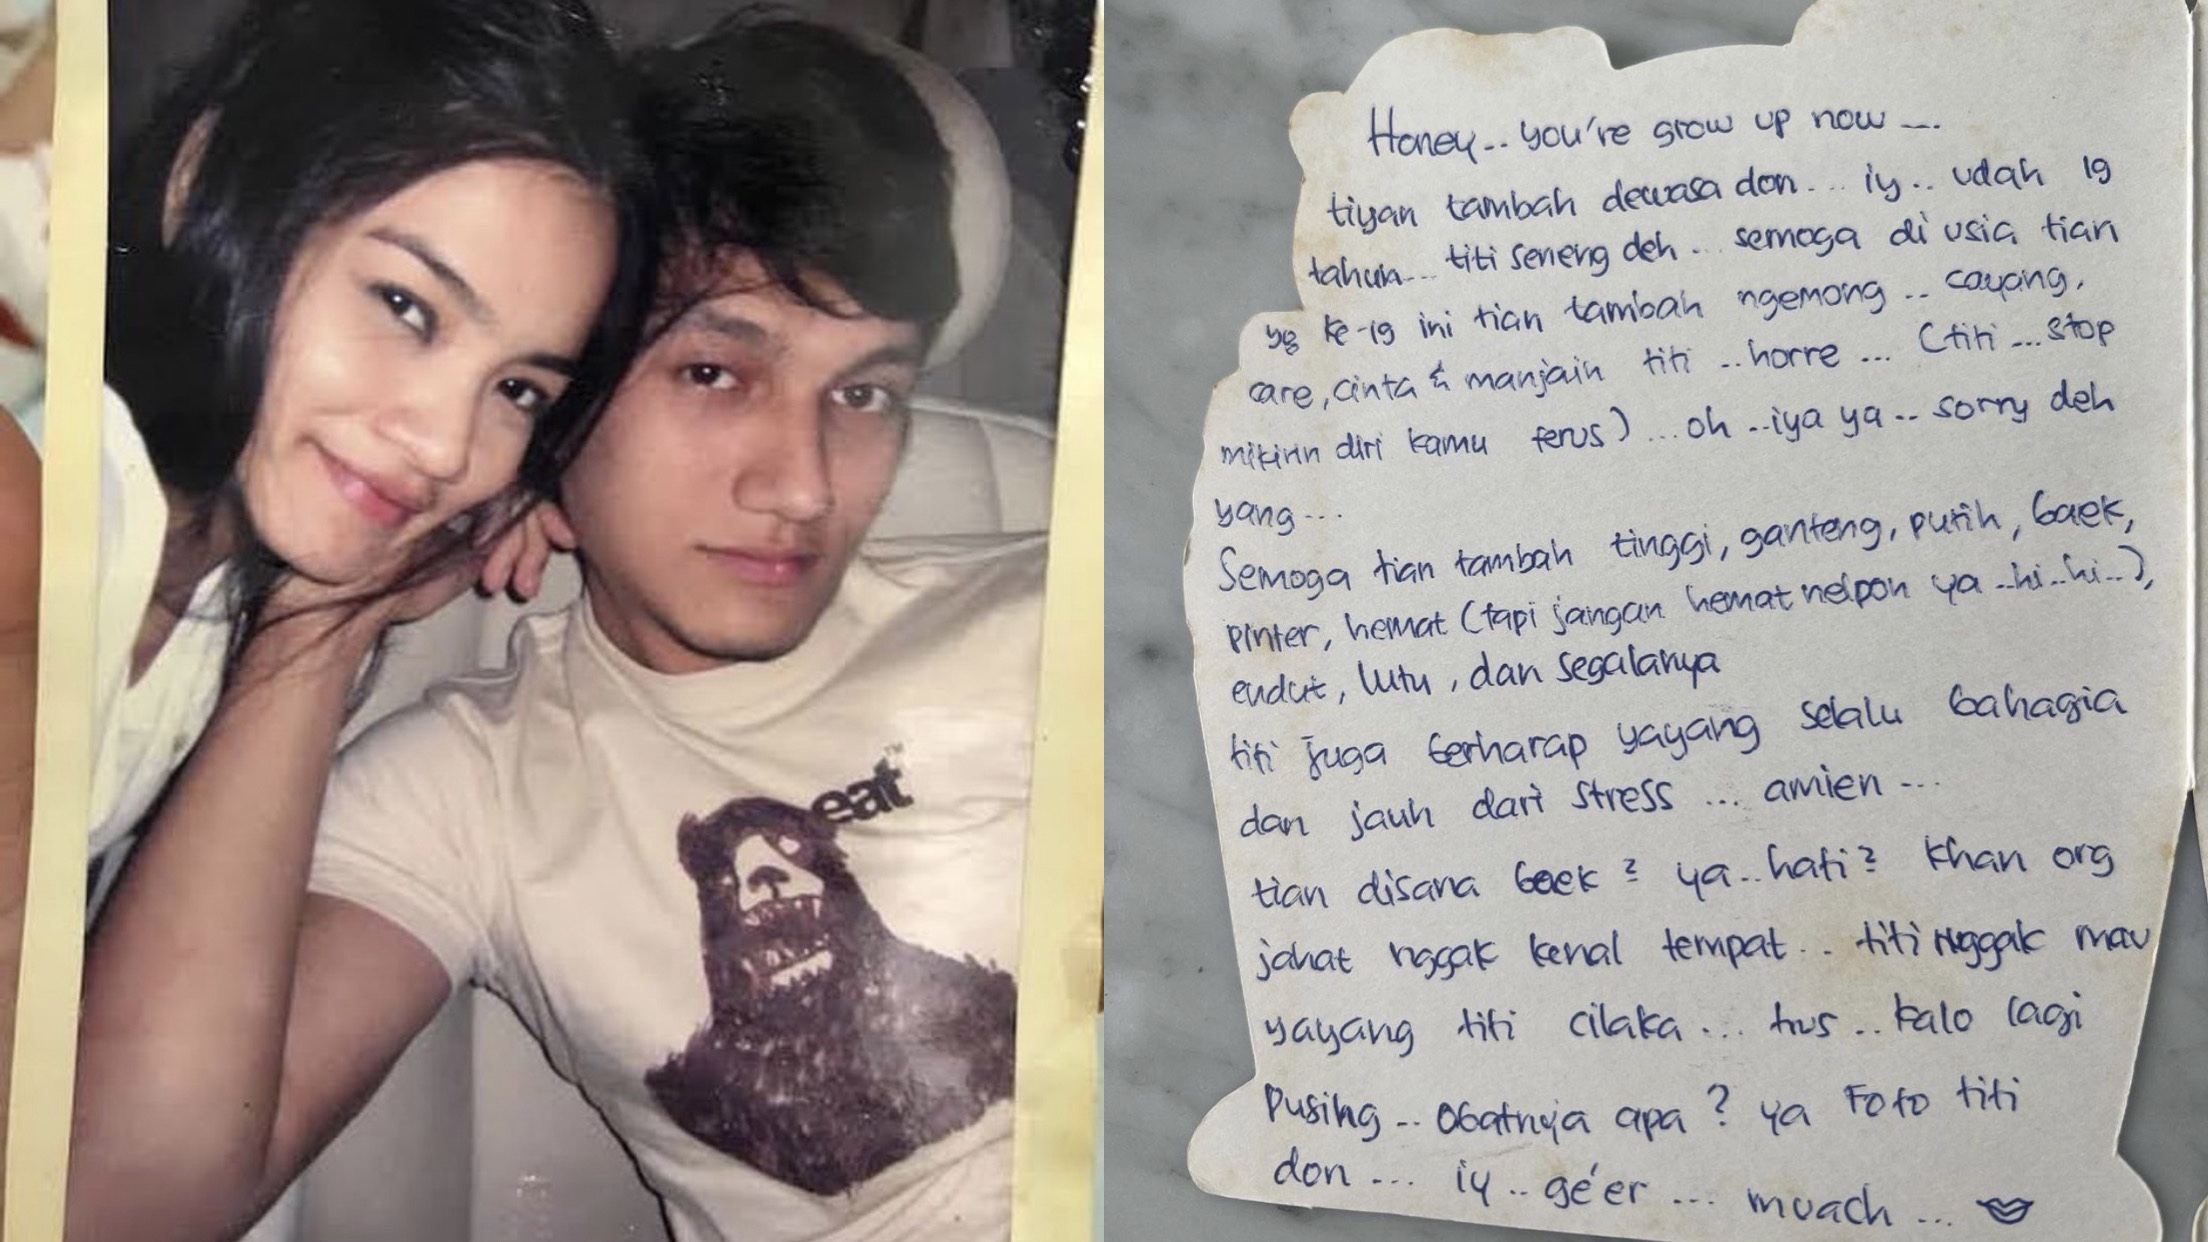 eat
Honey.. you're grow up now ....
tiyan tambah dewasa don... iy.. udah 19
tahun... titi seneng deh... semoga di usia tian
yg ke-19 ini tian tambah ngemong.. cayang,
care, cinta & manjain titi ..horre ... (titi ...stop
mikirin diri kamu terus) ...oh ..iya ya.. sorry deh
yang...
Semoga tian tambah tinggi, ganteng, putih, baek,
pinter, hemat (tapi jangan hemat nelpon ya ..hi..hi..),
endut, lutu, dan segalanya
titi juga berharap yayang selalu bahagia
dan jauh dari stress ... amien ...
tian disana baek² ya.. hati² khan org
jahat nggak kenal tempat... titi nggak mau
yayang titi cilaka... trus.. kalo lagi
pusing.. obatnya apa? ya Foto titi
don... iy.. gé'er ... muach ...